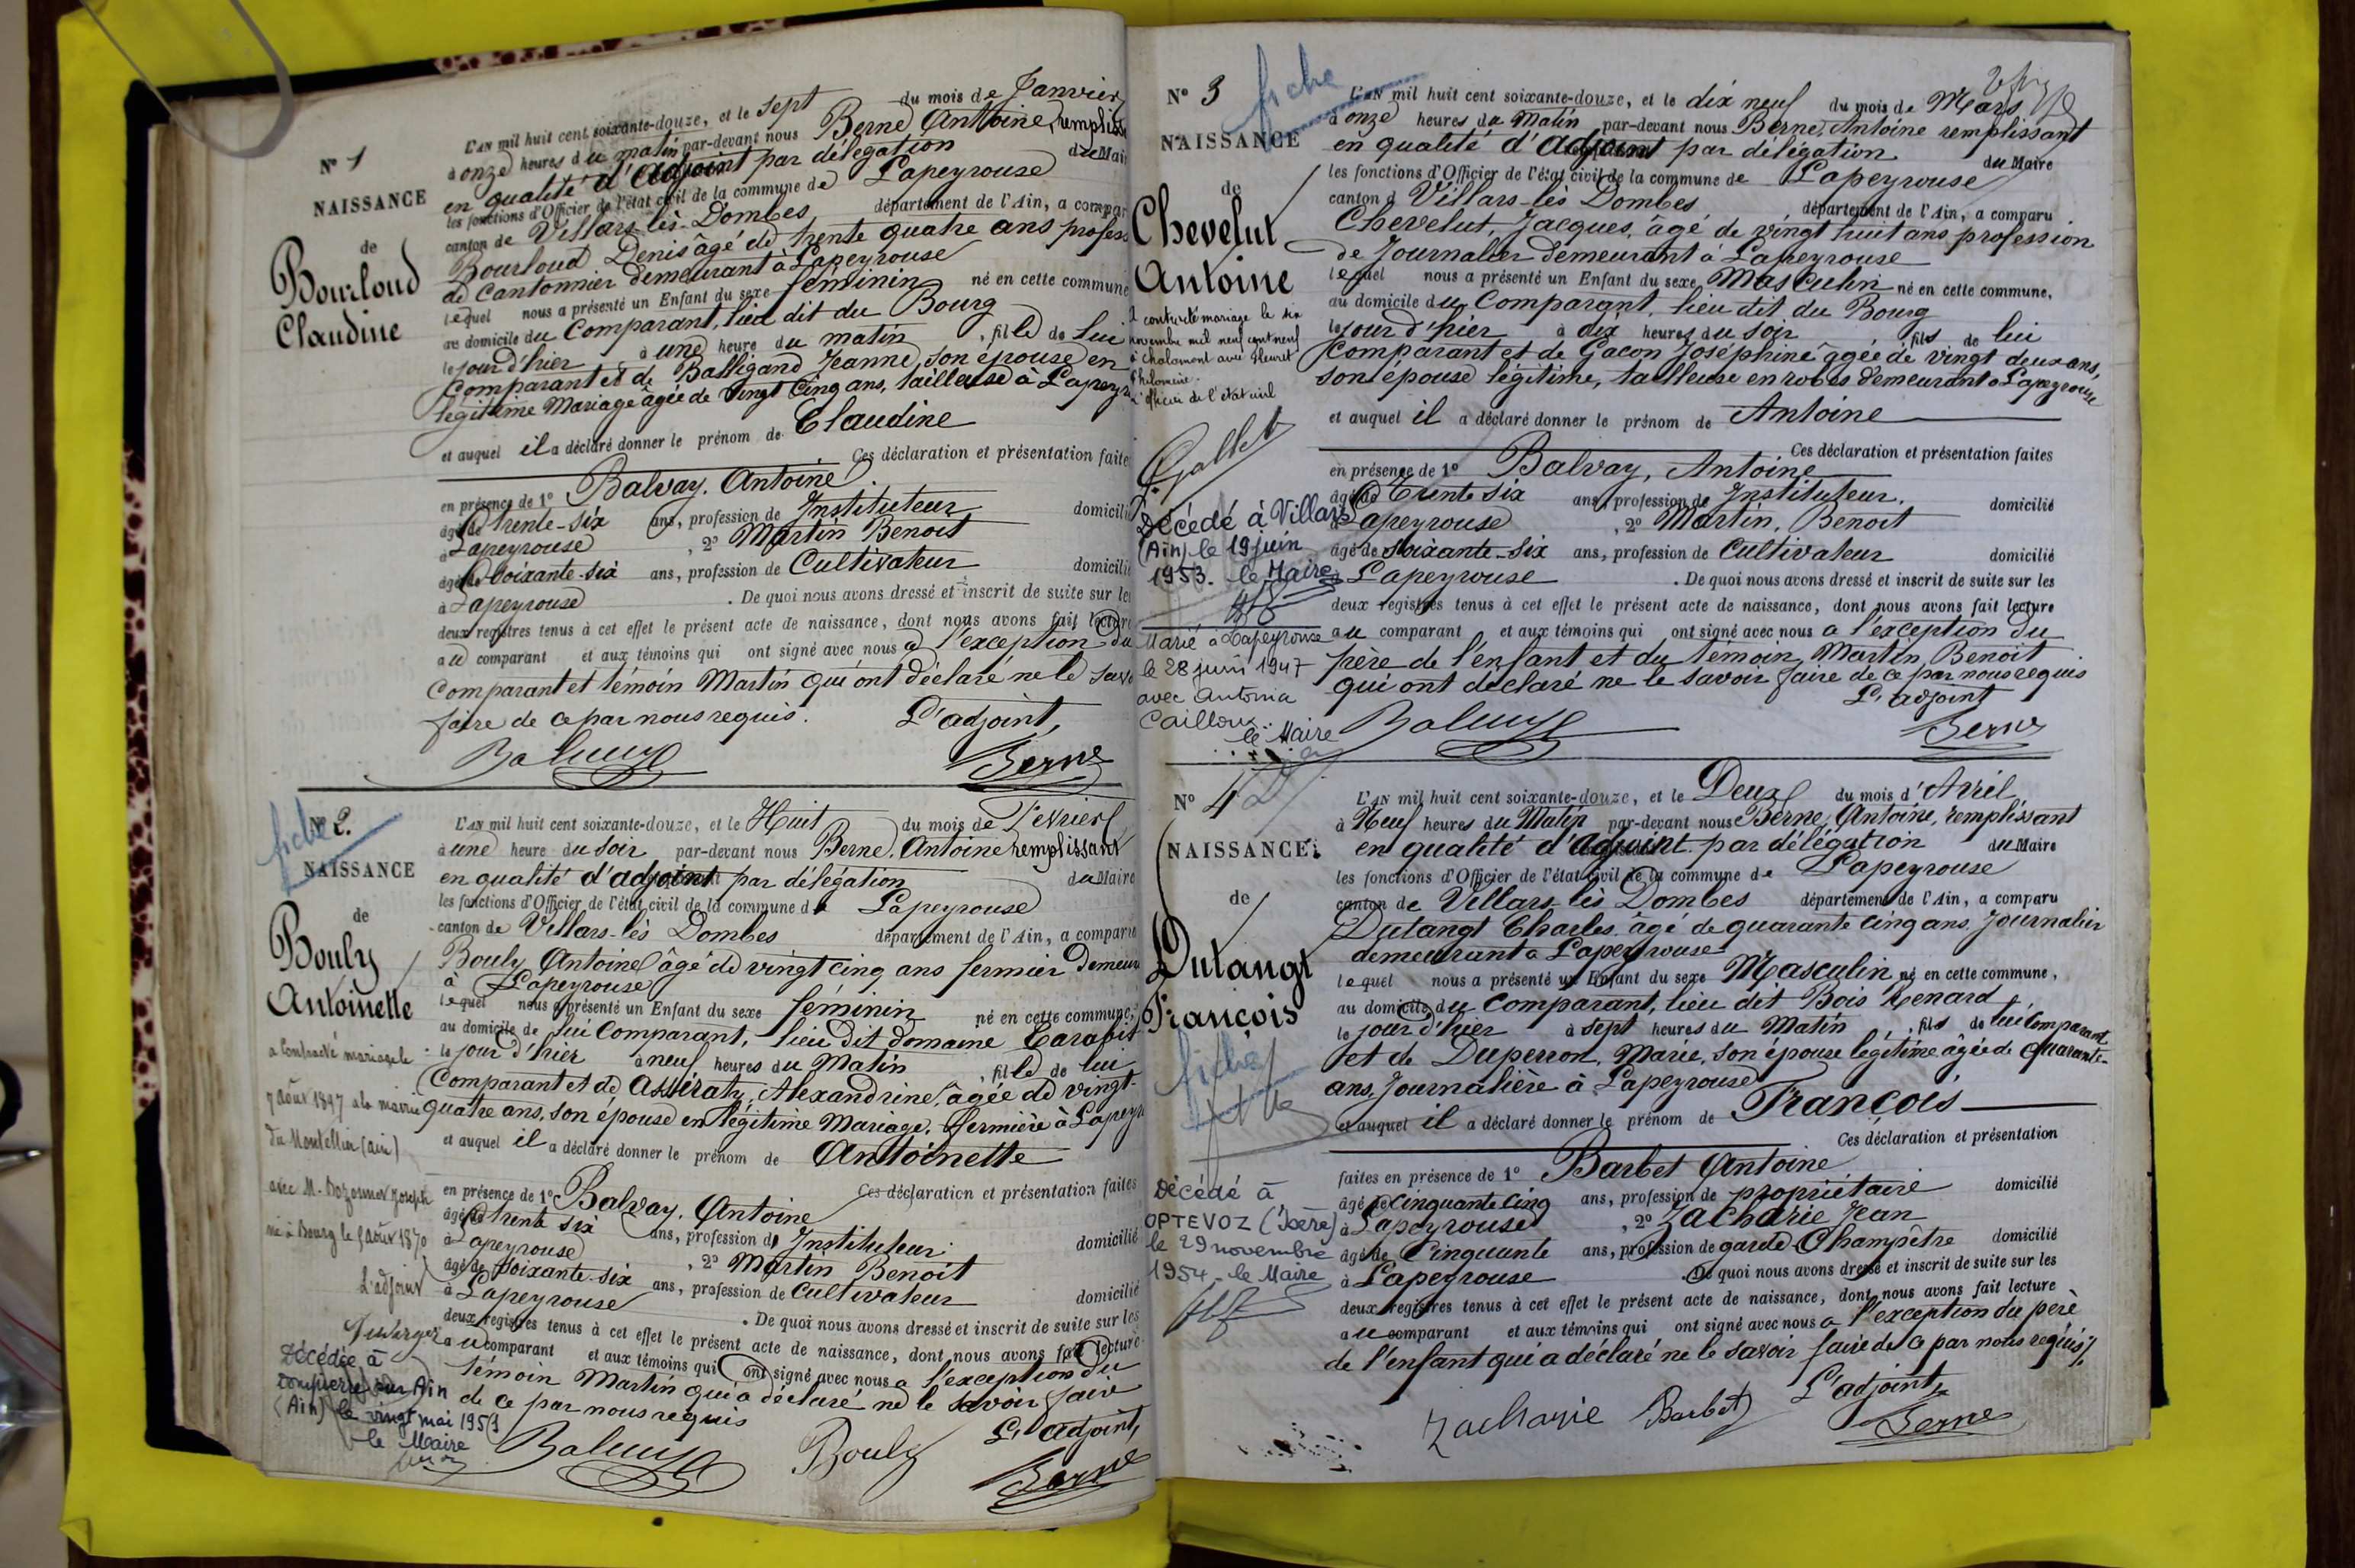 N° 1
NAISSANCE
de
Bourloud
Claudine
L'AN mil huit cent soixante-douze, et le sept du mois de Janvier
à onze heures du matin par-devant nous Berne Antoine, remplissa
en qualité d'adjoint par délégation du Mai
les fonctions d'Officier de l'état civil de la commune de Lapeyrouse
canton de Villars-lès-Dombes département de l'Ain, a compar
Bourloud Denis âgé de trente quatre ans profess
de Cantonnier demeurant à Lapeyrouse
lequel nous a présenté un Enfant du sexe féminin né en cette commune
au domicile du Comparant, lieu dit du Bourg
le jour d'hier à une heure du matin, fille de lui
Comparant et de Balligand Jeanne, son épouse en
légitime Mariage âgée de Vingt Cinq ans, tailleuse à Lapeyr
et auquel il a déclaré donner le prénom de Claudine
Ces déclaration et présentation faite
en présence de 1° Balvay. Antoine
âgé de trente-six ans, profession de Instituteur domicili
à Lapeyrouse, 2° Martin Benoit
âgé de Soixante-six ans, profession de Cultivateur domicili
à Lapeyrouse. De quoi nous avons dressé et inscrit de suite sur le
deux registres tenus à cet effet le présent acte de naissance, dont nous avons fait lecture
au comparant et aux témoins qui ont signé avec nous a l'exception du
Comparant et témoin Martin qui ont déclaré ne le sav
faire de ce par nous requis. L'adjoint,
Balvay Berne
fiche
N° 2.
NAISSANCE
de
Bouly
Antoinette
a contracté mariage le
7 août 1897 à la mairie
du Montellier (ain)
avec M. Joseph
né à Bourg le août 1870
L'adjoint
Décédée à
sur Ain
(Ain) le vingt mai 1953
le Maire
L'AN mil huit cent soixante-douze, et le Huit du mois de Février
à une heure du soir par-devant nous Berne. Antoine remplissant
en qualité d'adjoint par délégation du Maire
les fonctions d'Officier de l'état civil de la commune de Lapeyrouse
canton de Villars-lès Dombes département de l'Ain, a comparu
Bouly Antoine âgé de vingt cinq ans fermier Demeur
à Lapeyrouse
lequel nous a présenté un Enfant du sexe féminin né en cette commune,
au domicile de lui Comparant, lieu dit domaine Carabit
le jour d'hier à neuf heures du Matin, fille de lui
Comparant et de Alexandrine, âgée de vingt-
quatre ans, son épouse en légitime Mariage. fermière à Lapey
et auquel il a déclaré donner le prénom de Antoinette
Ces déclaration et présentation faites
en présence de 1° Balvay. Antoine
âgé de trente six ans, profession de Instituteur domicilié
à Lapeyrouse, 2° Martin Benoit
âgé de soixante-six ans, profession de Cultivateur domicilié
à Lapeyrouse. De quoi nous avons dressé et inscrit de suite sur les
deux registres tenus à cet effet le présent acte de naissance, dont nous avons fait lecture
au comparant et aux témoins qui ont signé avec nous a l'exception du
témoin Martin qui a déclaré ne le savoir faire
de ce par nous requis L'adjoint,
Balvay Bouly Berne
N° 3
fiche
NAISSANCE
de
Chevelut
Antoine
A contracté mariage le six
novembre mil neuf cent neuf
à Chalamont avec Fleuret
Philomène.
L'officier de l'état civil
Décédé à Villars
(Ain) le 19 juin
1953. le Maire
Marié à Lapeyrouse
le 28 juin 1947
avec Antonia
Cailloux.
le Maire
L'AN mil huit cent soixante-douze, et le dix neuf du mois de Mars
à onze heures du Matin par-devant nous Berne, Antoine remplissant
en qualité d'adjoint par délégation du Maire
les fonctions d'Officier de l'état civil de la commune de Lapeyrouse
canton d Villars-lès Dombes département de l'Ain, a comparu
Chevelut, Jacques, âgé de vingt huit ans, profession
de Journalier demeurant à Lapeyrouse
lequel nous a présenté un Enfant du sexe Masculin né en cette commune,
au domicile du Comparant, lieu dit du Bourg
le jour d'hier à dix heures du soir fils de lui
Comparant et de Gacon Joséphine âgée de vingt deux ans,
son épouse légitime, tailleuse en robes demeurant à Lapeyrouse
et auquel il a déclaré donner le prénom de Antoine
Ces déclaration et présentation faites
en présence de 1° Balvay, Antoine
âgé de Trente six ans, profession de Instituteur. domicilié
à Lapeyrouse, 2° Martin, Benoit
âgé de soixante-six ans, profession de Cultivateur domicilié
à Lapeyrouse. De quoi nous avons dressé et inscrit de suite sur les
deux registres tenus à cet effet le présent acte de naissance, dont nous avons fait lecture
au comparant et aux témoins qui ont signé avec nous a l'exception du
père de l'enfant et du témoin Martin, Benoit
qui ont déclaré ne le savoir faire de ce par nous requis
L'adjoint
Balvay Berne
N° 4
NAISSANCE
de
Dutangt
François
fiche
Décédé à
OPTEVOZ (Isère)
le 29 novembre
1954. le Maire
L'AN mil huit cent soixante-douze, et le Deux du mois d'Avril
à Neuf heures du Matin par-devant nous Berne, Antoine, remplissant
en qualité d'adjoint par délégation du Maire
les fonctions d'Officier de l'état civil de la commune de Lapeyrouse
canton de Villars-lès Dombes département de l'Ain, a comparu
Dutangt Charles, âgé de quarante cinq ans, Journalier
demeurant à Lapeyrouse
lequel nous a présenté un Enfant du sexe Masculin né en cette commune,
au domicile du Comparant, lieu dit Bois Renard
le jour d'hier à sept heures du Matin, fils de lui Comparant
et de Duperron, Marie, son épouse légitime âgée de Quarante-
ans, Journalière à Lapeyrouse
et auquel il a déclaré donner le prénom de François
Ces déclaration et présentation
faites en présence de 1° Barbet Antoine
âgé de Cinquante Cinq ans, profession de propriétaire domicilié
à Lapeyrouse, 2° Zacharie Jean
âgé de Cinquante ans, profession de garde-Champêtre domicilié
à Lapeyrouse. De quoi nous avons dressé et inscrit de suite sur les
deux registres tenus à cet effet le présent acte de naissance, dont nous avons fait lecture
au comparant et aux témoins qui ont signé avec nous a l'exception du père
de l'enfant qui a déclaré ne le savoir faire de ce par nous requis
L'adjoint,
Zacharie Barbet Berne